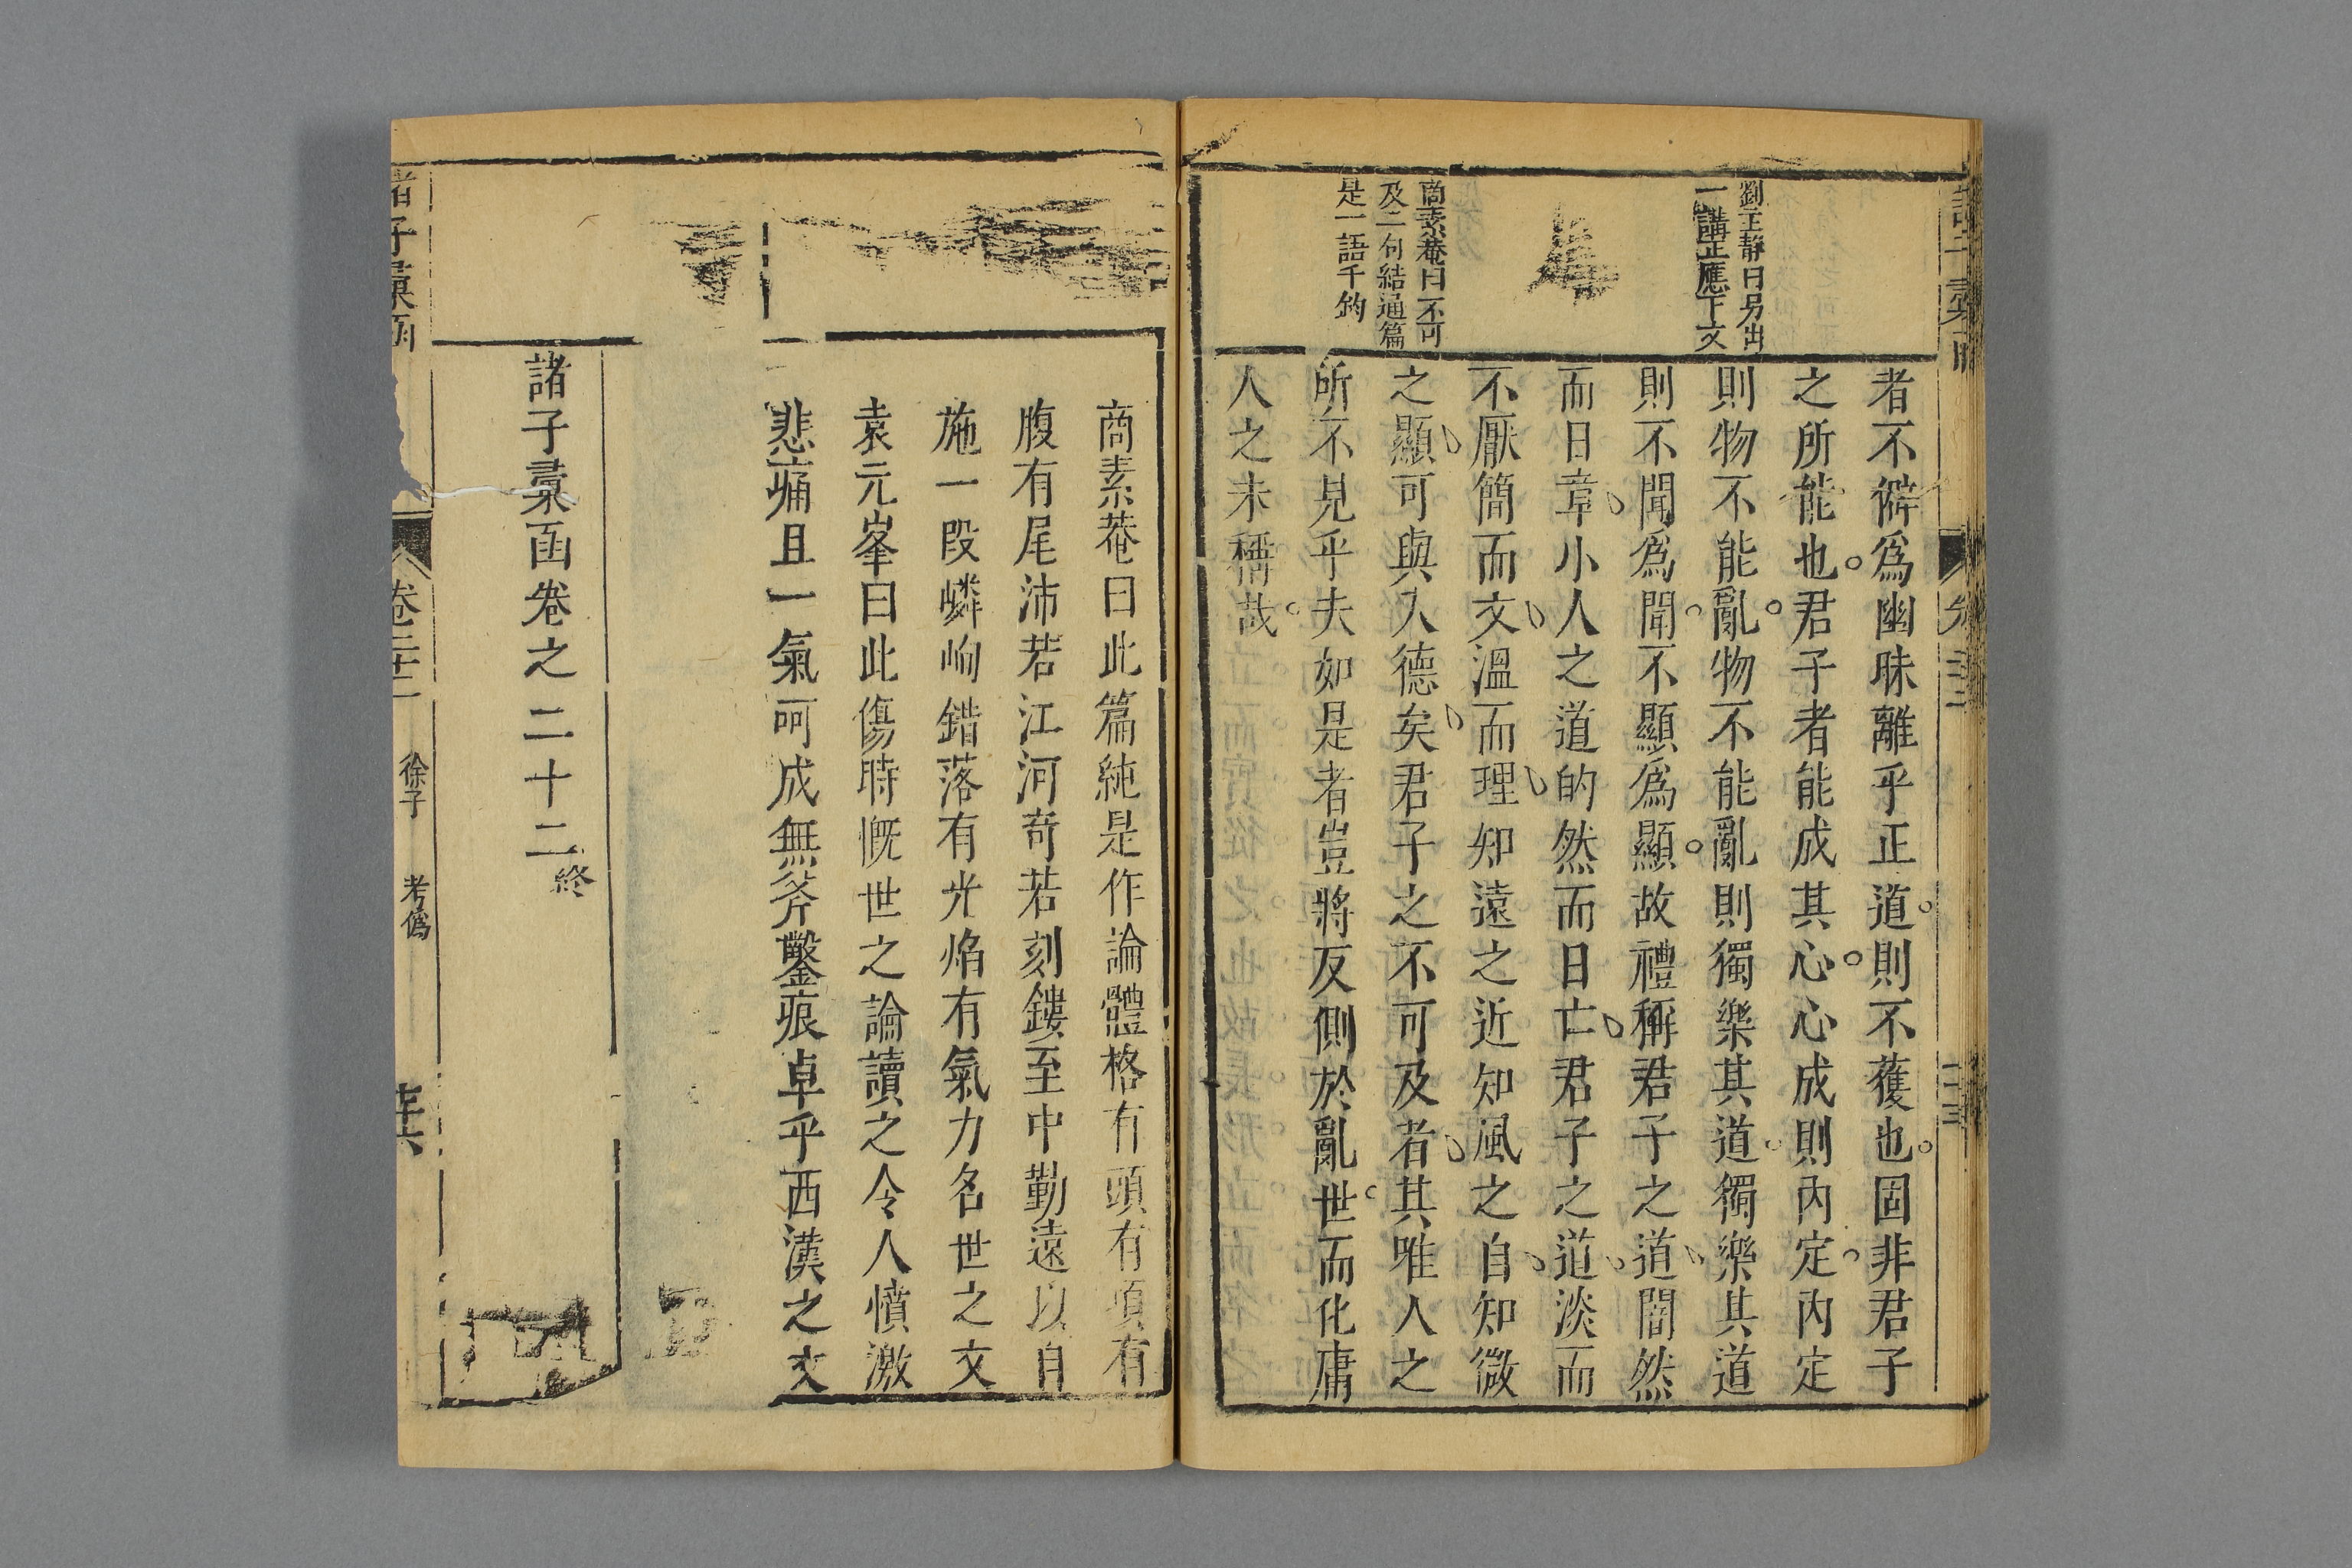 劉玉靜曰另出
一講正應下文
商素菴曰不可
及二句結通篇
是一語千鈞
者不僻爲幽昧離乎正道則不獲也固非君子
之所能也君子者能成其心心成則內定內定
則物不能亂物不能亂則獨樂其道獨樂其道
則不聞爲聞不顯爲顯故禮稱君子之道闇然
而日章小人之道的然而日亡君子之道淡而
不厭簡而文溫而理知遠之近知風之自知微
之顯可與入德矣君子之不可及者其唯人之
所不見乎夫如是者豈將反側於亂世而化庸
人之未稱哉
商素菴曰此篇純是作論體格有頭有項有
腹有尾沛若江河奇若刻鏤至中勤遠以自
施一段嶙峋錯落有光焰有氣力名世之文
袁元峯曰此傷時慨世之論讀之令人憤激
悲痛且一氣呵成無斧鑿痕卓乎西漢之文
諸子彚函卷之二十二終
諸子彚函
卷二十二
徐子
考僞